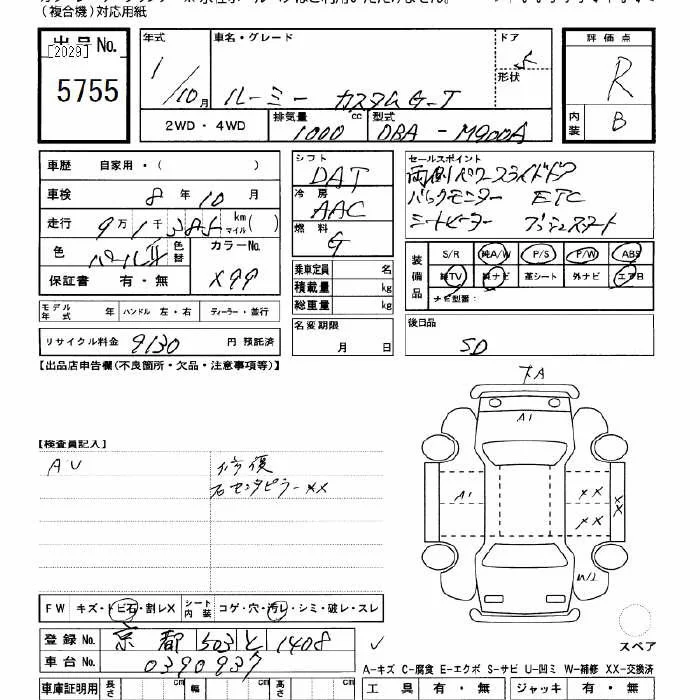 (複合機)対応用紙
出品No.
[2029]
5755
年式
1/10月
車名・グレード
ルーミー カスタムG-T
ドア
5
形状
評価点
R
内装
B
2WD・4WD
排気量
1000cc
型式
DBA-M900A
車歴 自家用・( )
車検 8年10月
走行 9万1千385km マイル( )
色 パールⅡ
色替
カラーNo.
X99
保証書 有・無
モデル年式 年 ハンドル 左・右 ディーラー・並行
リサイクル料金 9130 円 預託済
シフト
DAT
冷房
AAC
燃料
G
乗車定員 名
積載量 kg
総重量 kg
名変期限
月 日
セールスポイント
両側パワースライドドア
バックモニター ETC
シートヒーター プッシュスタート
装備品
S/R 純A/W P/S P/W ABS
純TV 純ナビ 革シート 外ナビ エアB
ナビ型番:
後日品
SD
【出品店申告欄(不良箇所・欠品・注意事項等)】
【検査員記入】
AU
修復
右センタピラーXX
A
A1
A1
XX
XX
XX
W2
FW キズ・トビ石・割レX
シート内装 コゲ・穴・汚レ・シミ・破レ・スレ
登録No. 京都 503 と 1408
車台No. 0390937
車庫証明用 長さ cm 幅 cm 高さ cm
スペア
A-キズ C-腐食 E-エクボ S-サビ U-凹ミ W-補修 XX-交換済
工具 有・無 ジャッキ 有・無